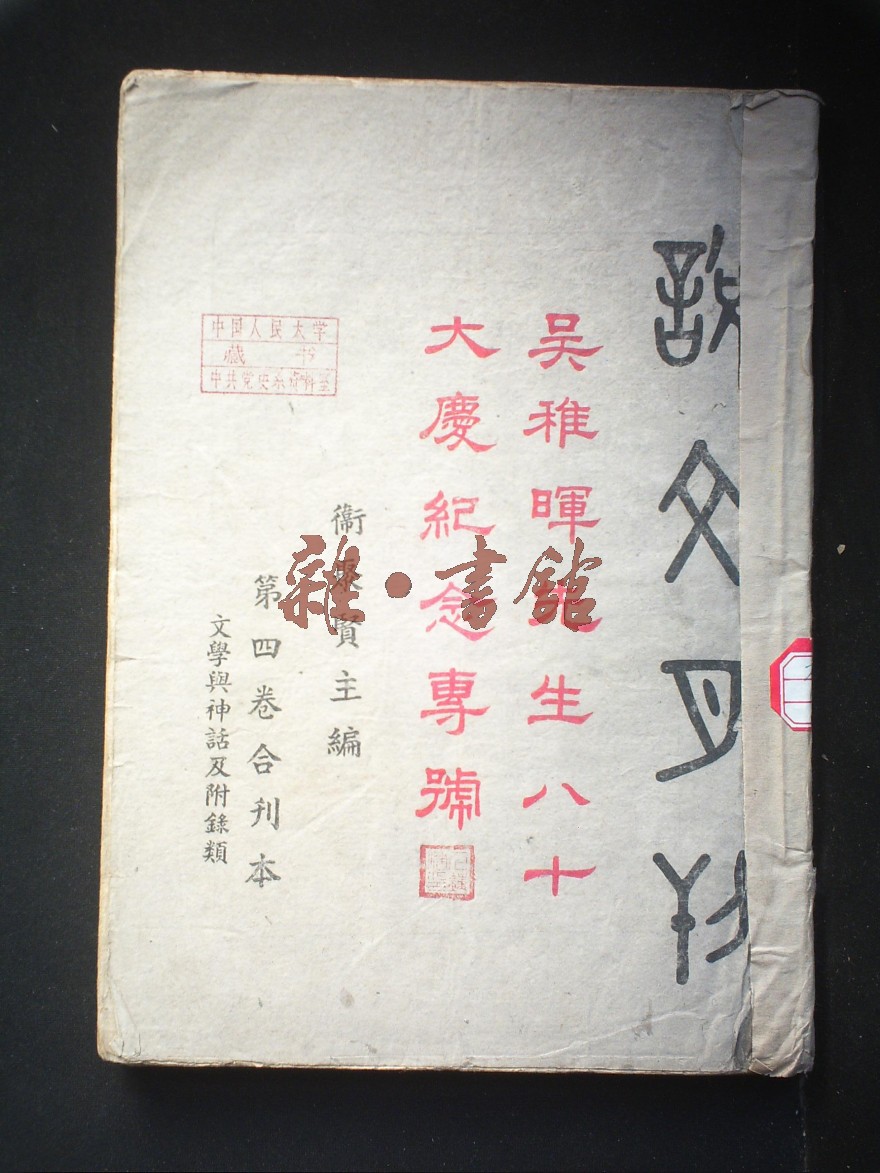 說文月刊
吴稚暉先生八十
大慶紀念專號
衞聚賢主編
第四卷合刊本
文學與神話及附錄類
中国人民大学
藏书
中共党史系资料室
雜·書館